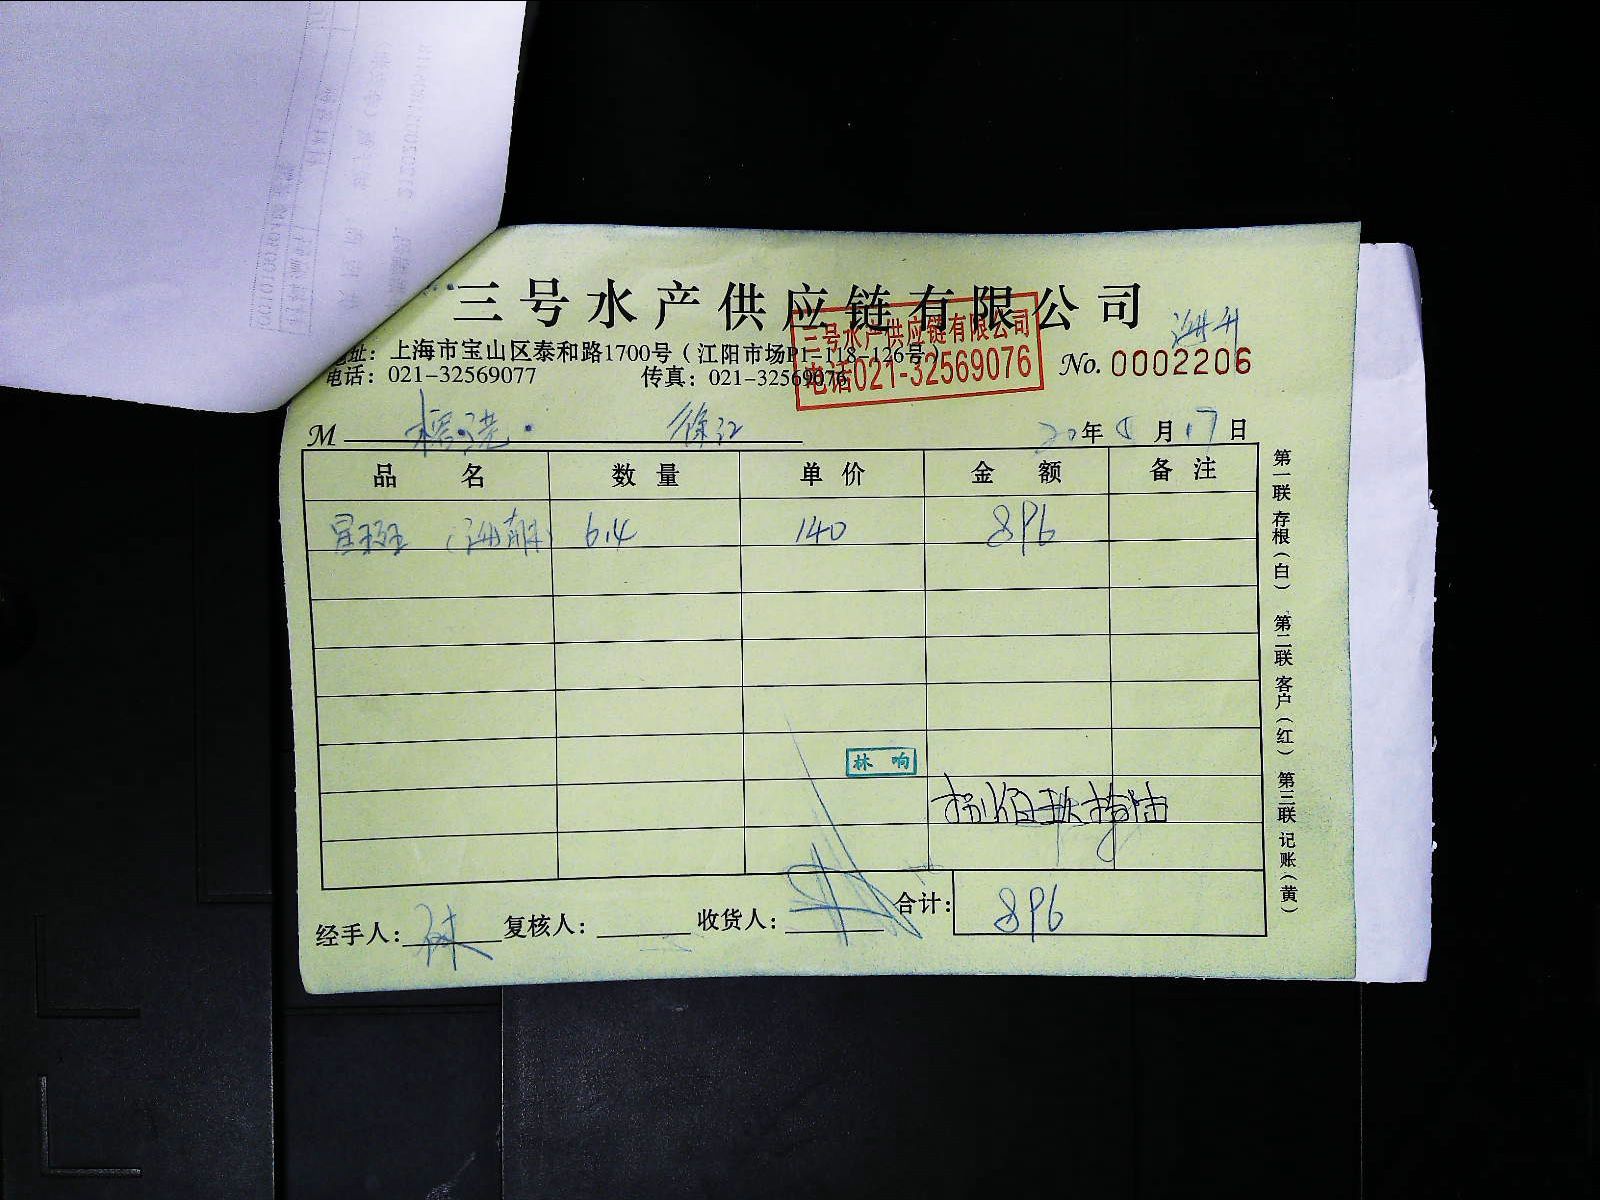 三号水产供应链有限公司
地址：上海市宝山区泰和路1700号（江阳市场P1-118-126号）
三号水产供应链有限公司
电话021-32569076
No. 0002206
电话：021-32569077 传真：021-32569076
M 徐江 20年8月17日
品名 数量 单价 金额 备注
星斑 6.4 140 896
林响
捌佰玖拾陆
经手人：林 复核人： 收货人： 合计：896
第一联存根（白） 第二联客户（红） 第三联记账（黄）